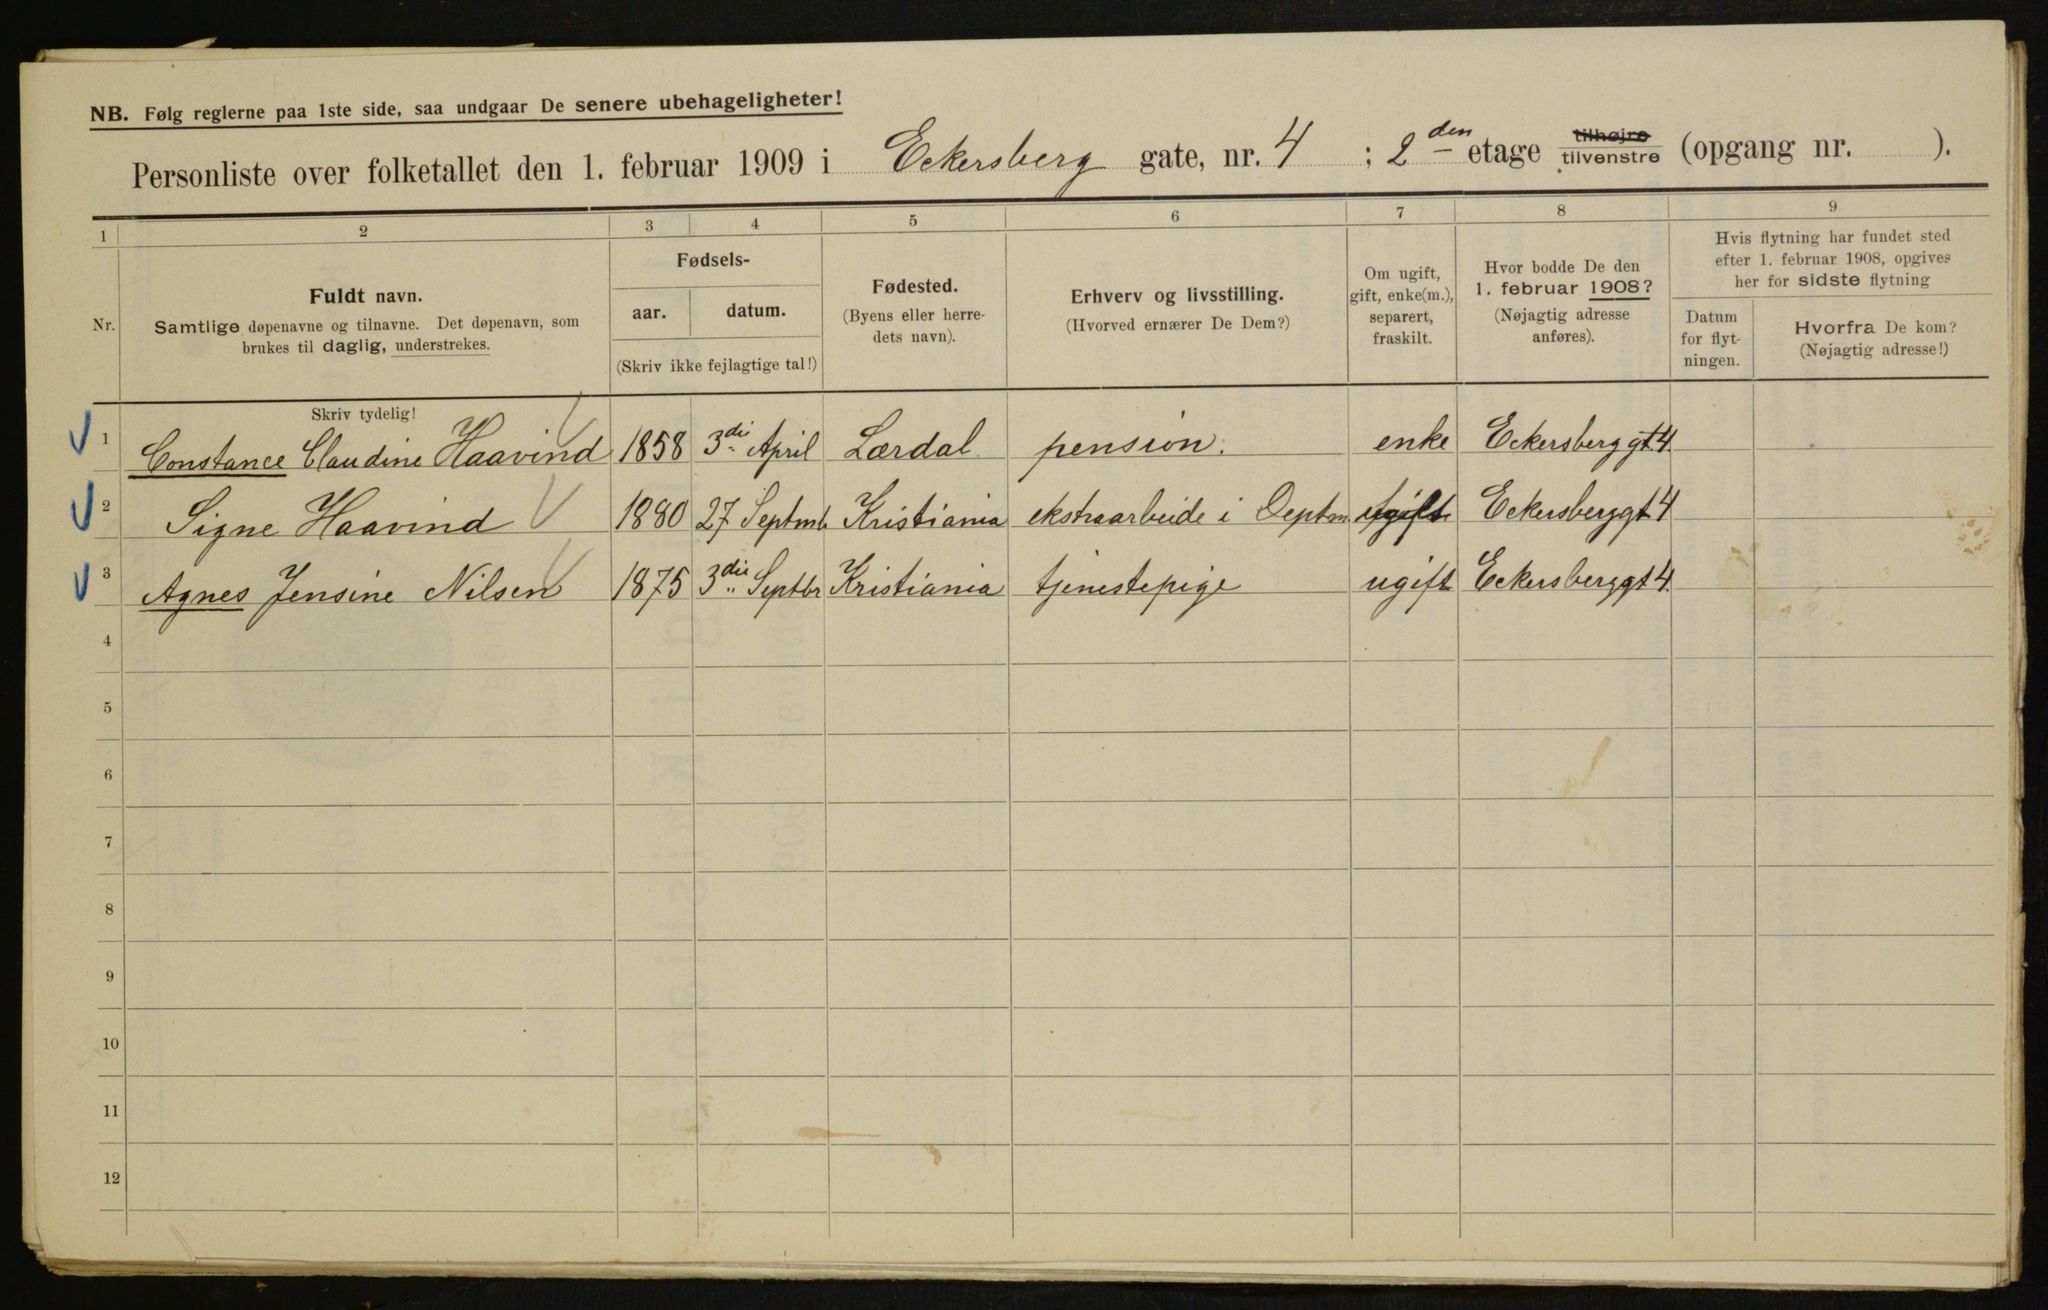 NB. Følg reglerne paa 1ste side, saa undgaar De senere ubehageligheter!
Personliste over folketallet den 1. februar 1909 i Eckersberg gate, nr. 4 ; 2den etage tilhøjre tilvenstre (opgang nr. ).
1 2 3 4 5 6 7 8 9
Nr.
Fuldt navn.
Samtlige døpenavne og tilnavne. Det døpenavn, som
brukes til daglig, understrekes.
Fødsels-
aar. datum.
(Skriv ikke fejlagtige tal!)
Fødested.
(Byens eller herre-
dets navn).
Erhverv og livsstilling.
(Hvorved ernærer De Dem?)
Om ugift,
gift, enke(m.),
separert,
fraskilt.
Hvor bodde De den
1. februar 1908?
(Nøjagtig adresse
anføres).
Hvis flytning har fundet sted
efter 1. februar 1908, opgives
her for sidste flytning
Datum
for flyt-
ningen.
Hvorfra De kom?
(Nøjagtig adresse!)
Skriv tydelig!
1 Constance Claudine Haavind 1858 3die April Lærdal pension. enke Eckersberggt. 4.
2 Signe Haavind 1880 27 Septmb Kristiania ekstraarbeide i Deptm ugift Eckersberggt 4
3 Agnes Jensine Nilsen 1875 3die Septbr Kristiania tjenestepige ugift Eckersberggt 4.
4
5
6
7
8
9
10
11
12